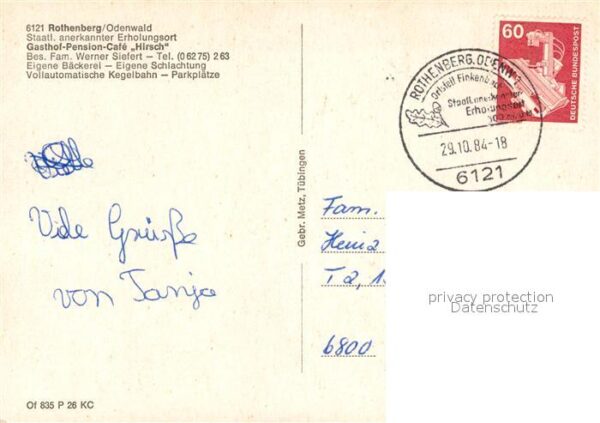 6121 Rothenberg/Odenwald
Staatl. anerkannter Erholungsort
Gasthof-Pension-Café „Hirsch"
Bes. Fam. Werner Siefert – Tel. (0 62 75) 2 63
Eigene Bäckerei – Eigene Schlachtung
Vollautomatische Kegelbahn – Parkplätze
Viele Grüße
von Tanja
Of 835 P 26 KC
Gebr. Metz, Tübingen
ROTHENBERG, ODENW
Ortsteil Finkenbach
Staatl. anerkannter
Erholungsort
29.10.84-18
6121
60
DEUTSCHE BUNDESPOST
Fam.
Heinz
T2, 1
6800
privacy protection
Datenschutz